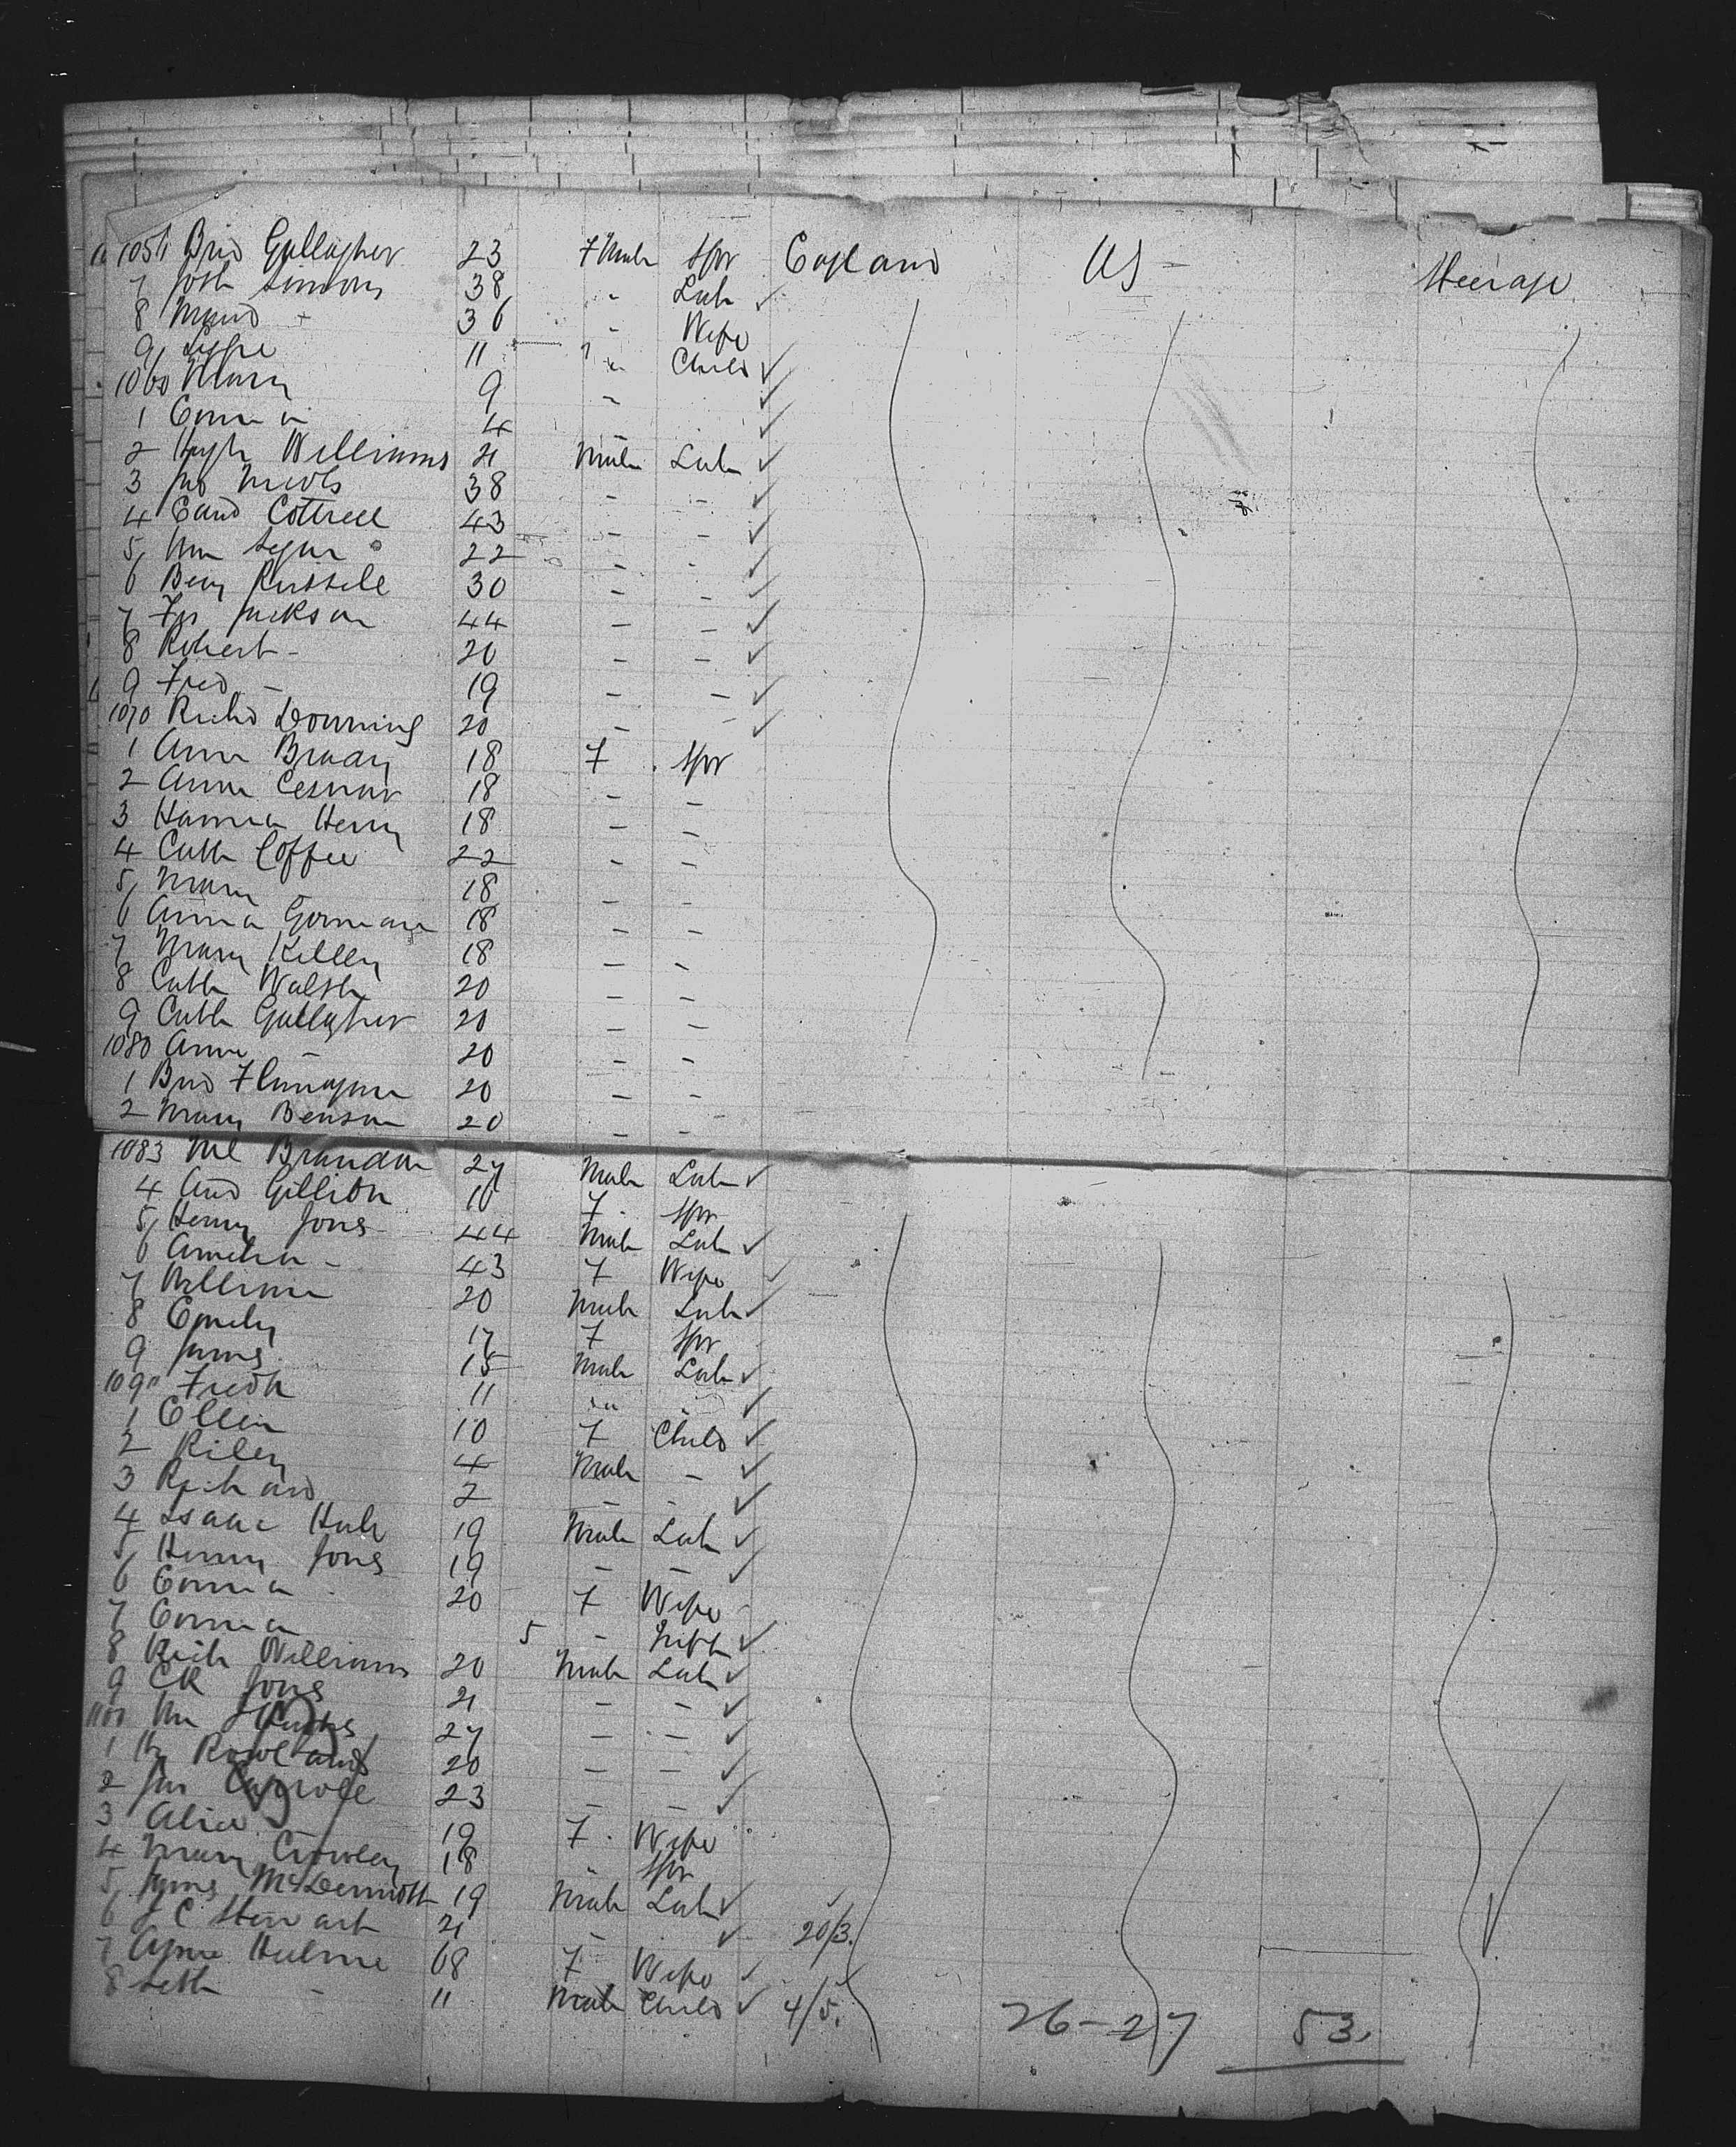 1056 Brid Gallagher 23 Female Spr England US Steerage
7 Josh Simons 38 " Lab ✓
8 Maud - 36 " Wife
9 Lizzie 11 " Child ✓
1060 Mary 9 " ✓
1 Emma 4 - ✓
2 Hugh Williams 21 Male Lab ✓
3 Jno Nicols 38 - - ✓
4 Edwd Cottrell 43 - - ✓
5 Wm 22 - - ✓
6 Benj Russell 30 - - ✓
7 Frs Jackson 44 - - ✓
8 Robert - 20 - - ✓
9 Fred - 19 - - ✓
1070 Richd Downing 20 - - ✓
1 Anna Brady 18 F Spr
2 Anna 18 - -
3 Hanna Henry 18 - -
4 Cath Coffee 22 - -
5 Mary - 18 - -
6 Anna Gorman 18 - -
7 Mary Kelley 18 - -
8 Cath Walsh 20 - -
9 Cath Gallagher 20 - -
1080 Anna - 20 - -
1 Brid Flanagan 20 - -
2 Mary Benson 20 - -
1083 Ml Brandon 27 Male Lab ✓
4 And 10 F Spr
5 Henry Jones 44 Male Lab ✓
6 Amelia - 43 F Wife ✓
7 William 20 Male Lab ✓
8 Emily 17 F Spr
9 James 15 Male Lab ✓
1090 Fredk 11 " " ✓
1 Ellen 10 F Child ✓
2 Riley 4 Male - ✓
3 Richard 2 - - ✓
4 Isaac Hale 19 Male Lab ✓
5 Henry Jones 19 - - ✓
6 Emma 20 F Wife -
7 Emma 5 - Inft ✓
8 Rich Williams 20 Male Lab ✓
9 CR Jones 21 - - ✓
1100 Wm Hughes 27 - - ✓
1 Hy Rowlands 20 - - ✓
2 Jas 23 - - ✓
3 Alice 19 F Wife
4 Mary Crowley 18 " Spr
5 James McDermott 19 Male Lab ✓
6 J C Stewart 21 - ✓ 20/3.
7 Hulme 68 F Wife ✓
8 Seth - 11 Male Child ✓ 4/5.
26-27 53.